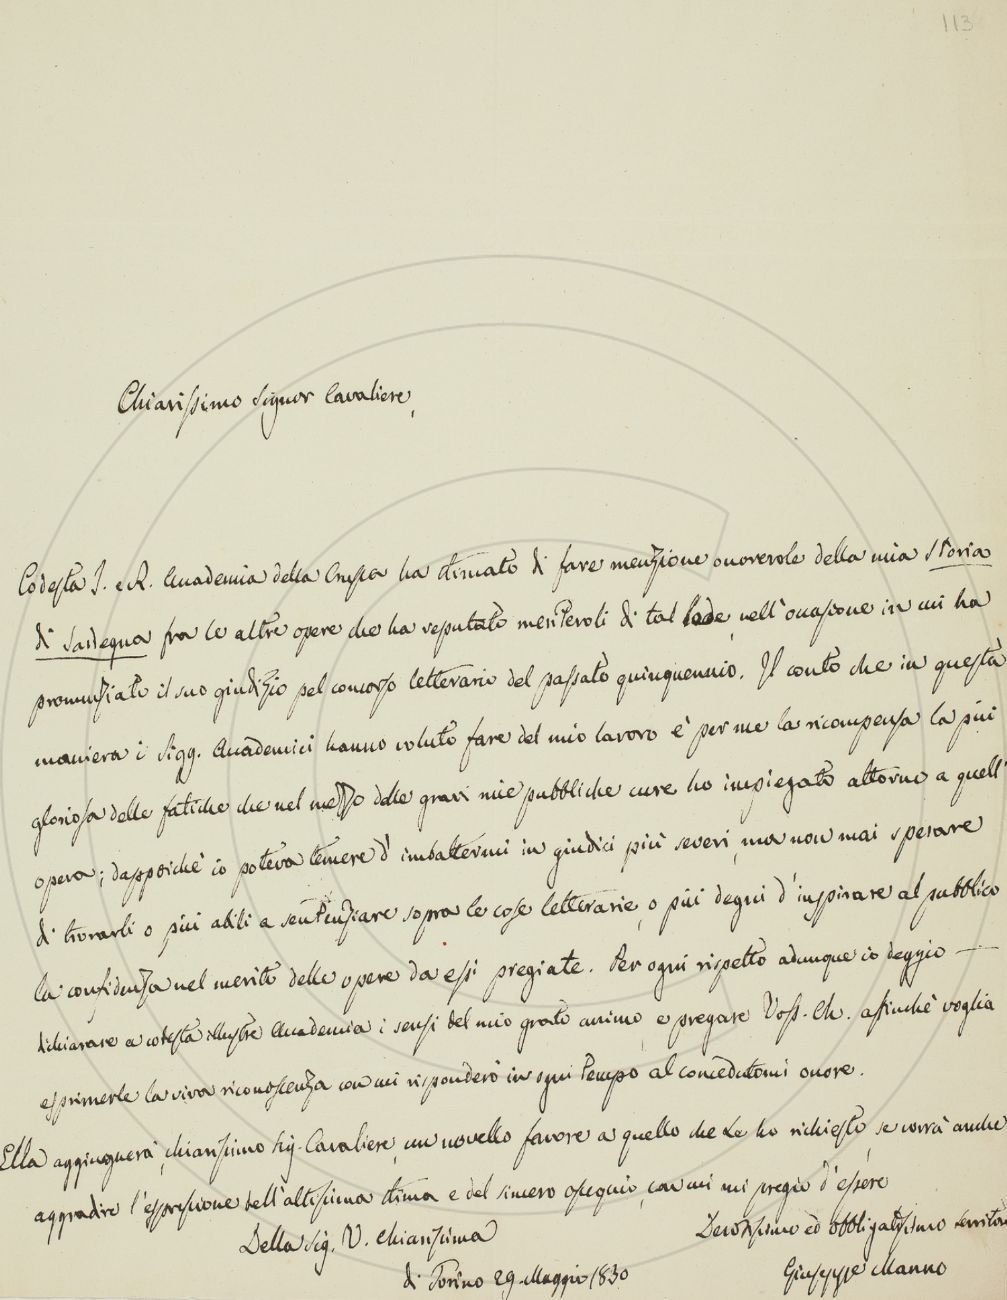 113
Chiarissimo Signor Cavaliere,
Codesta I. e R. Accademia della Crusca ha stimato di fare menzione onorevole della mia Storia
di Sardegna fra le altre opere che ha reputato meritevoli di tal lode, nell'occasione in cui ha
pronunziato il suo giudizio pel concorso letterario del passato quinquennio. Il conto che in questa
maniera i Sigg. Accademici hanno voluto fare del mio lavoro è per me la ricompensa la più
gloriosa delle fatiche che nel mezzo delle gravi mie pubbliche cure ho impiegato attorno a quell'
opera; dappoichè io poteva temere d'imbattermi in giudici più severi, ma non mai sperare
di trovarli o più abili a sentenziare sopra le cose letterarie, o più degni d'inspirare al pubblico
la confidenza nel merito delle opere da essi pregiate. Per ogni rispetto adunque io deggio —
dichiarare a codesta illustre Accademia i sensi del mio grato animo, e pregare Voss. Ch. affinchè voglia
esprimerle la viva riconoscenza con cui risponderò in ogni tempo al concedutomi onore.
Ella aggiugnerà, chiarissimo Sig. Cavaliere, un novello favore a quello che Le ho richiesto, se vorrà anche
aggradire l'espressione dell'altissima stima e del sincero ossequio, con cui mi pregio d'essere
Della Sig. V. Chiarissima
Devotissimo ed obbligatissimo servitore
di Torino 29 Maggio 1830
Giuseppe Manno